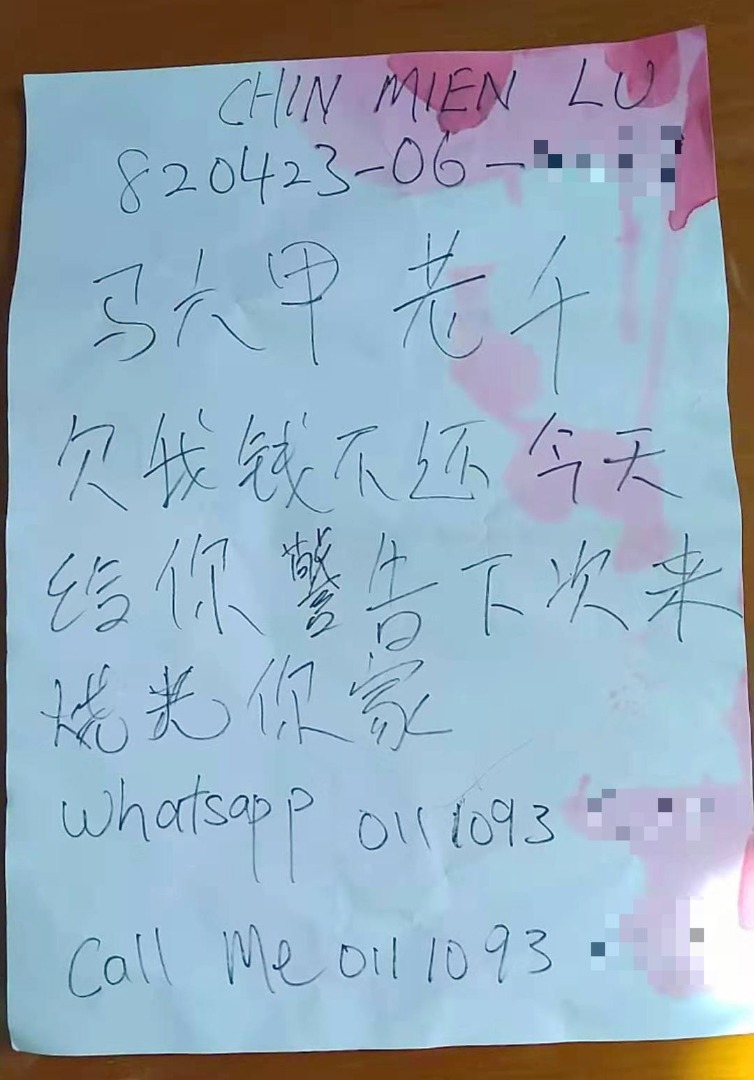 CHIN MIEN LU
820423-06-
马六甲 老千
欠我钱不还 今天
给你警告下次来
烧光你家
Whatsapp 0111093
Call Me 0111093